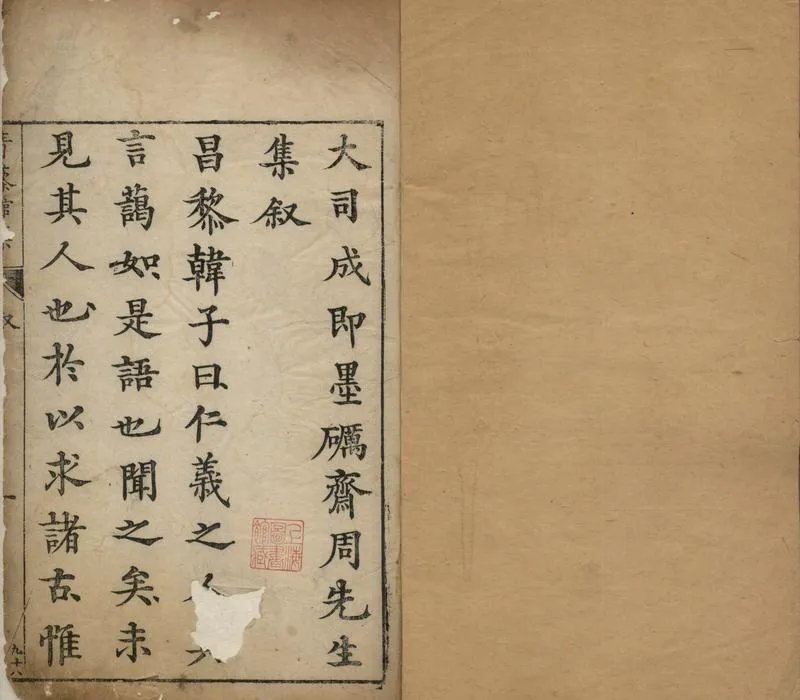 大司成即墨礪齋周先生
集叙
昌黎韓子曰仁義之人
言藹如是語也聞之矣未
見其人也於以求諸古惟
叙
一
九十八